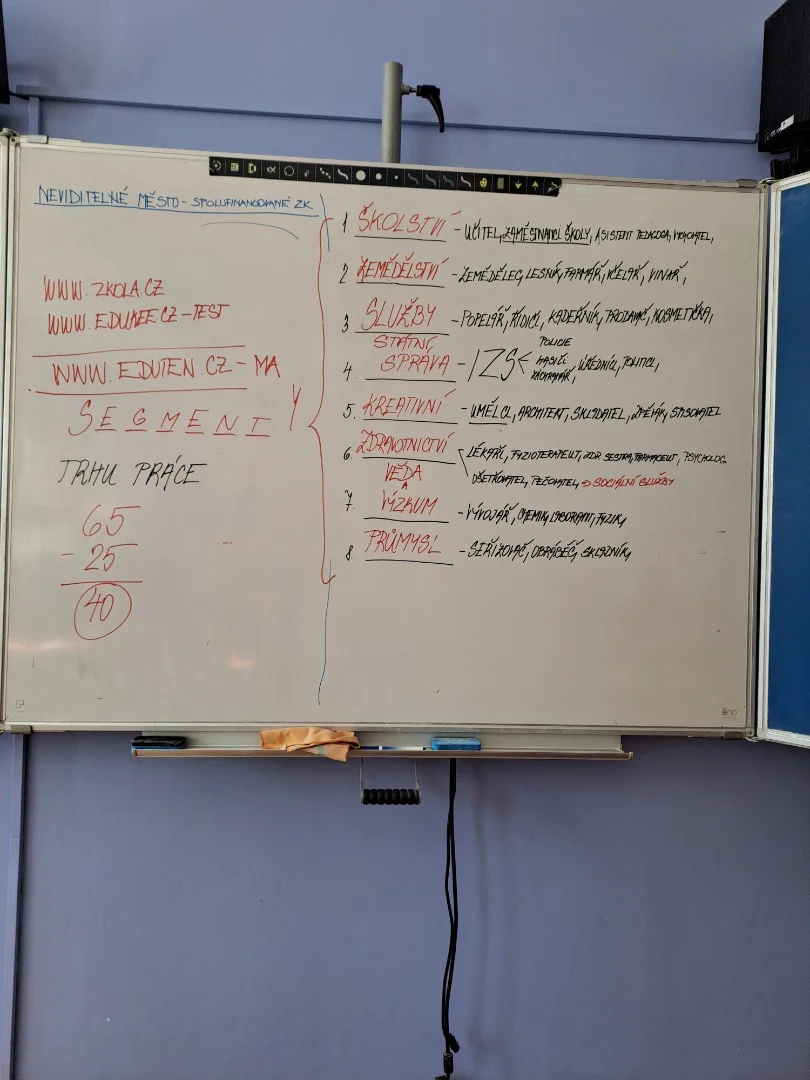 NEVIDITELNÉ MĚSTO - SPOLUFINANCOVANÉ ZK
WWW.ZKOLA.CZ
WWW.EDUKEE.CZ - TEST
WWW.EDUTEN.CZ - MA
SEGMENTY
TRHU PRÁCE
65
- 25
40
1. ŠKOLSTVÍ - UČITEL, ZAMĚSTNANCI ŠKOLY, ASISTENT PEDAGOGA, VYCHOVATEL,
2 ZEMĚDĚLSTVÍ - ZEMĚDĚLEC, LESNÍK, FARMÁŘ, VČELAŘ, VINAŘ,
3 SLUŽBY - POPELÁŘ, ŘIDIČI, KADEŘNÍK, PRODAVAČ, KOSMETIČKA,
4. STÁTNÍ SPRÁVA - IZS < POLICIE
HASIČI
ZÁCHRANÁŘ, ÚŘEDNÍCI, POLITICI,
5. KREATIVNÍ - UMĚLCI, ARCHITEKT, SKLADATEL, ZPĚVÁK, SPISOVATEL
6. ZDRAVOTNICTVÍ LÉKAŘI, FYZIOTERAPEUT, ZDR. SESTRA, FARMACEUT, PSYCHOLOG
OŠETŘOVATEL, PEČOVATEL, → SOCIÁLNÍ SLUŽBY
7. VĚDA A VÝZKUM - VÝVOJÁŘ, CHEMIK, LABORANT, FYZIK,
8. PRŮMYSL - SEŘIZOVAČ, OBRÁBĚČ, SKLADNÍK,
ēno